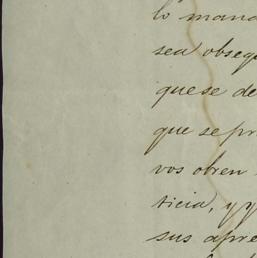 lo mand
sea obseq
que se de
que se pr
vos obren
ticia, y y
sus apre